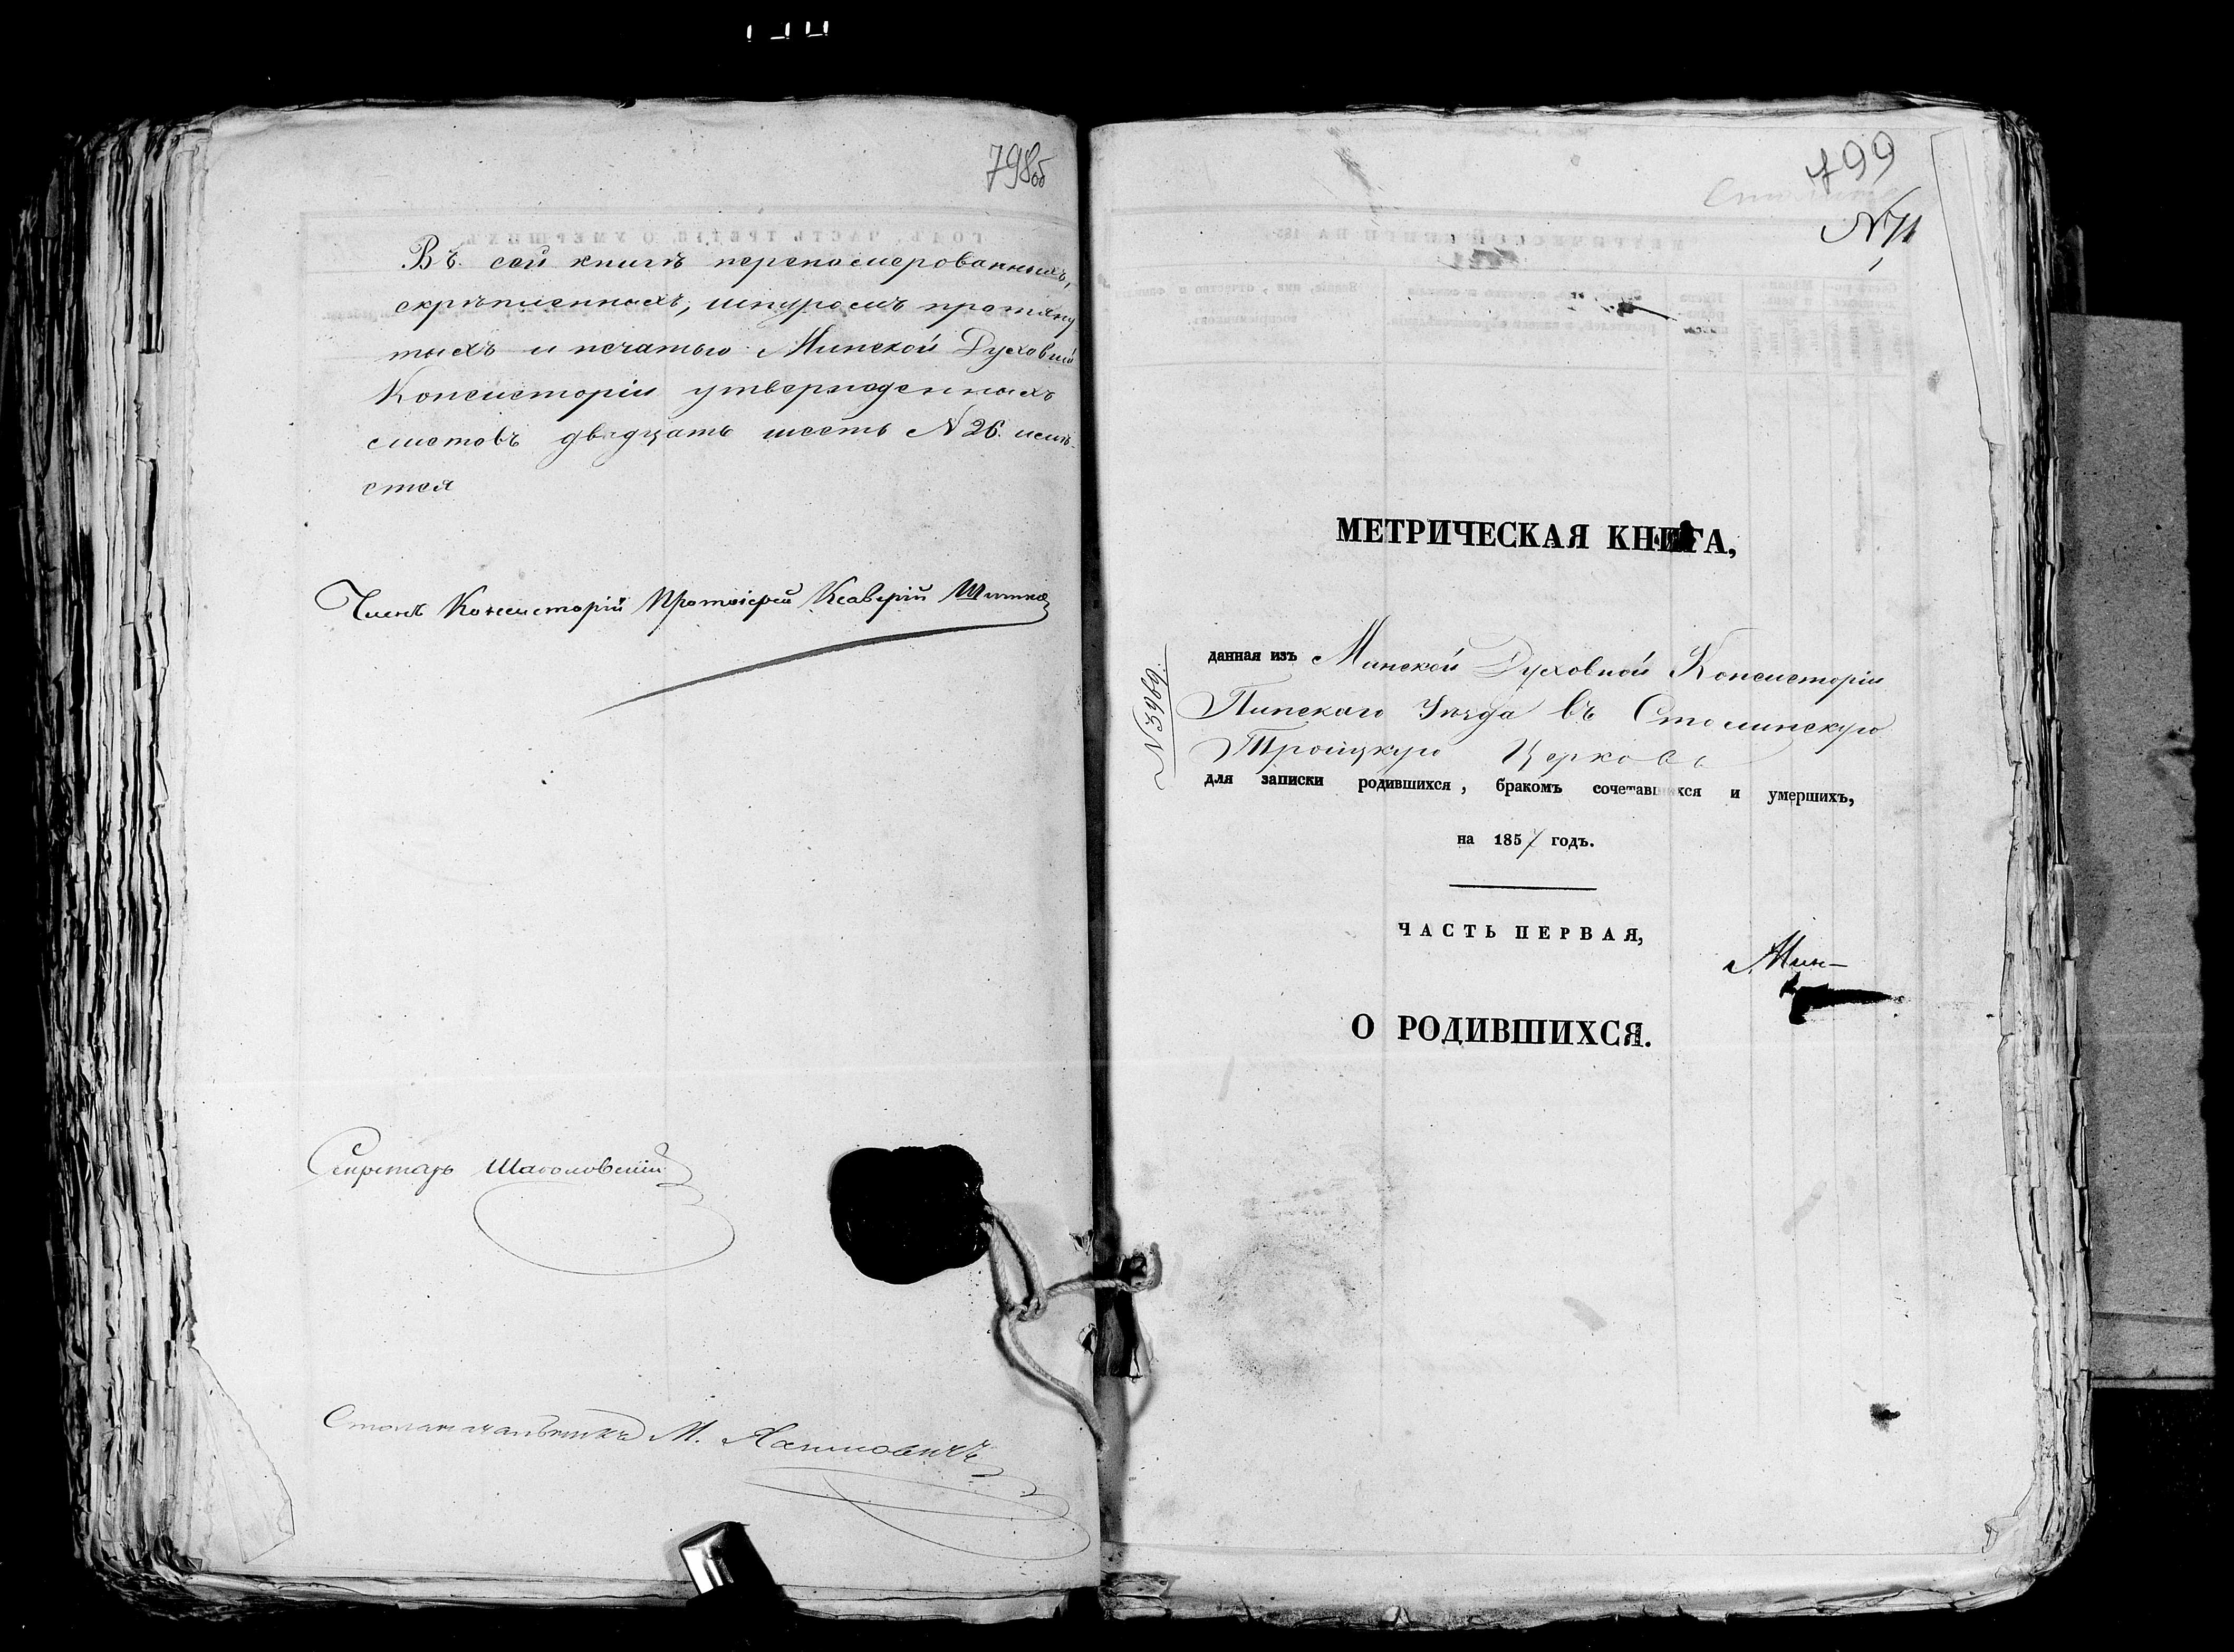 798об
Въ сей книгѣ перенумерованныхъ,
скрѣпленныхъ, шнуромъ протяну-
тыхъ и печатью Минской Духовной
Консисторіи утвержденныхъ
листовъ двадцать шесть № 26. имѣ-
ется
Членъ Консисторіи Протоіерей Ксаверій
Секретарь
Столоначальникъ М.
799
№ 71
МЕТРИЧЕСКАЯ КНИГА,
№ 3969.
данная изъ Минской Духовной Консисторіи
Пинскаго Уѣзда въ Столинскую
Троицкую Церковь
для записки родившихся, бракомъ сочетавшихся и умершихъ,
на 1857 годъ.
ЧАСТЬ ПЕРВАЯ,
Мин-
О РОДИВШИХСЯ.